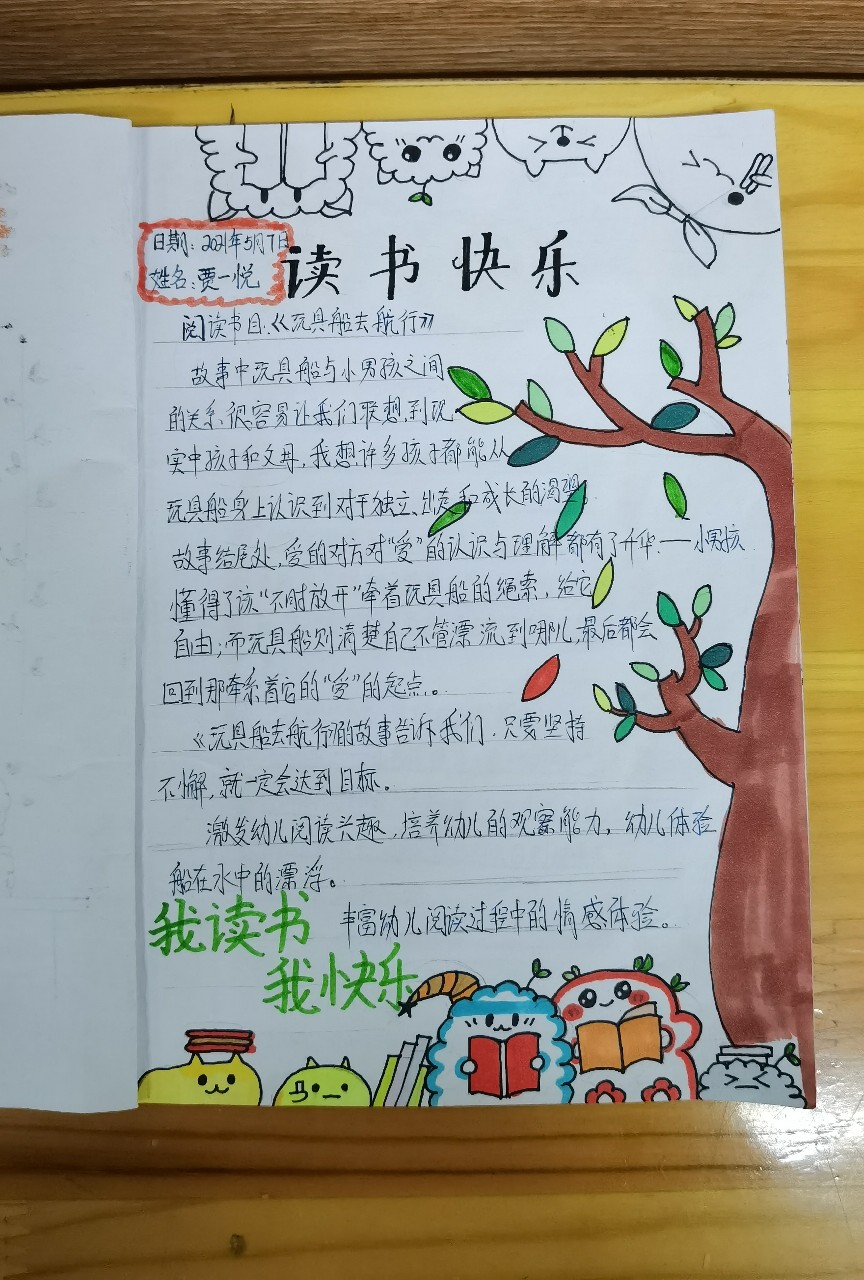 日期：2021年5月7日
姓名：贾一悦
读书快乐
阅读书目：《玩具船去航行》
故事中玩具船与小男孩之间
的关系，很容易让我们联想到现
实中孩子和父母，我想许多孩子都能从
玩具船身上认识到对于独立、出走和成长的渴望。
故事结尾处，爱的对方对“爱”的认识与理解都有了升华，——小男孩
懂得了该“不时放开”牵着玩具船的绳索，给它
自由；而玩具船则清楚自己不管漂流到哪儿，最后都会
回到那牵系着它的“爱”的起点。
《玩具船去航行》的故事告诉我们，只要坚持
不懈，就一定会达到目标。
激发幼儿阅读兴趣，培养幼儿的观察能力，幼儿体验
船在水中的漂浮。
丰富幼儿阅读过程中的情感体验。
我读书
我快乐